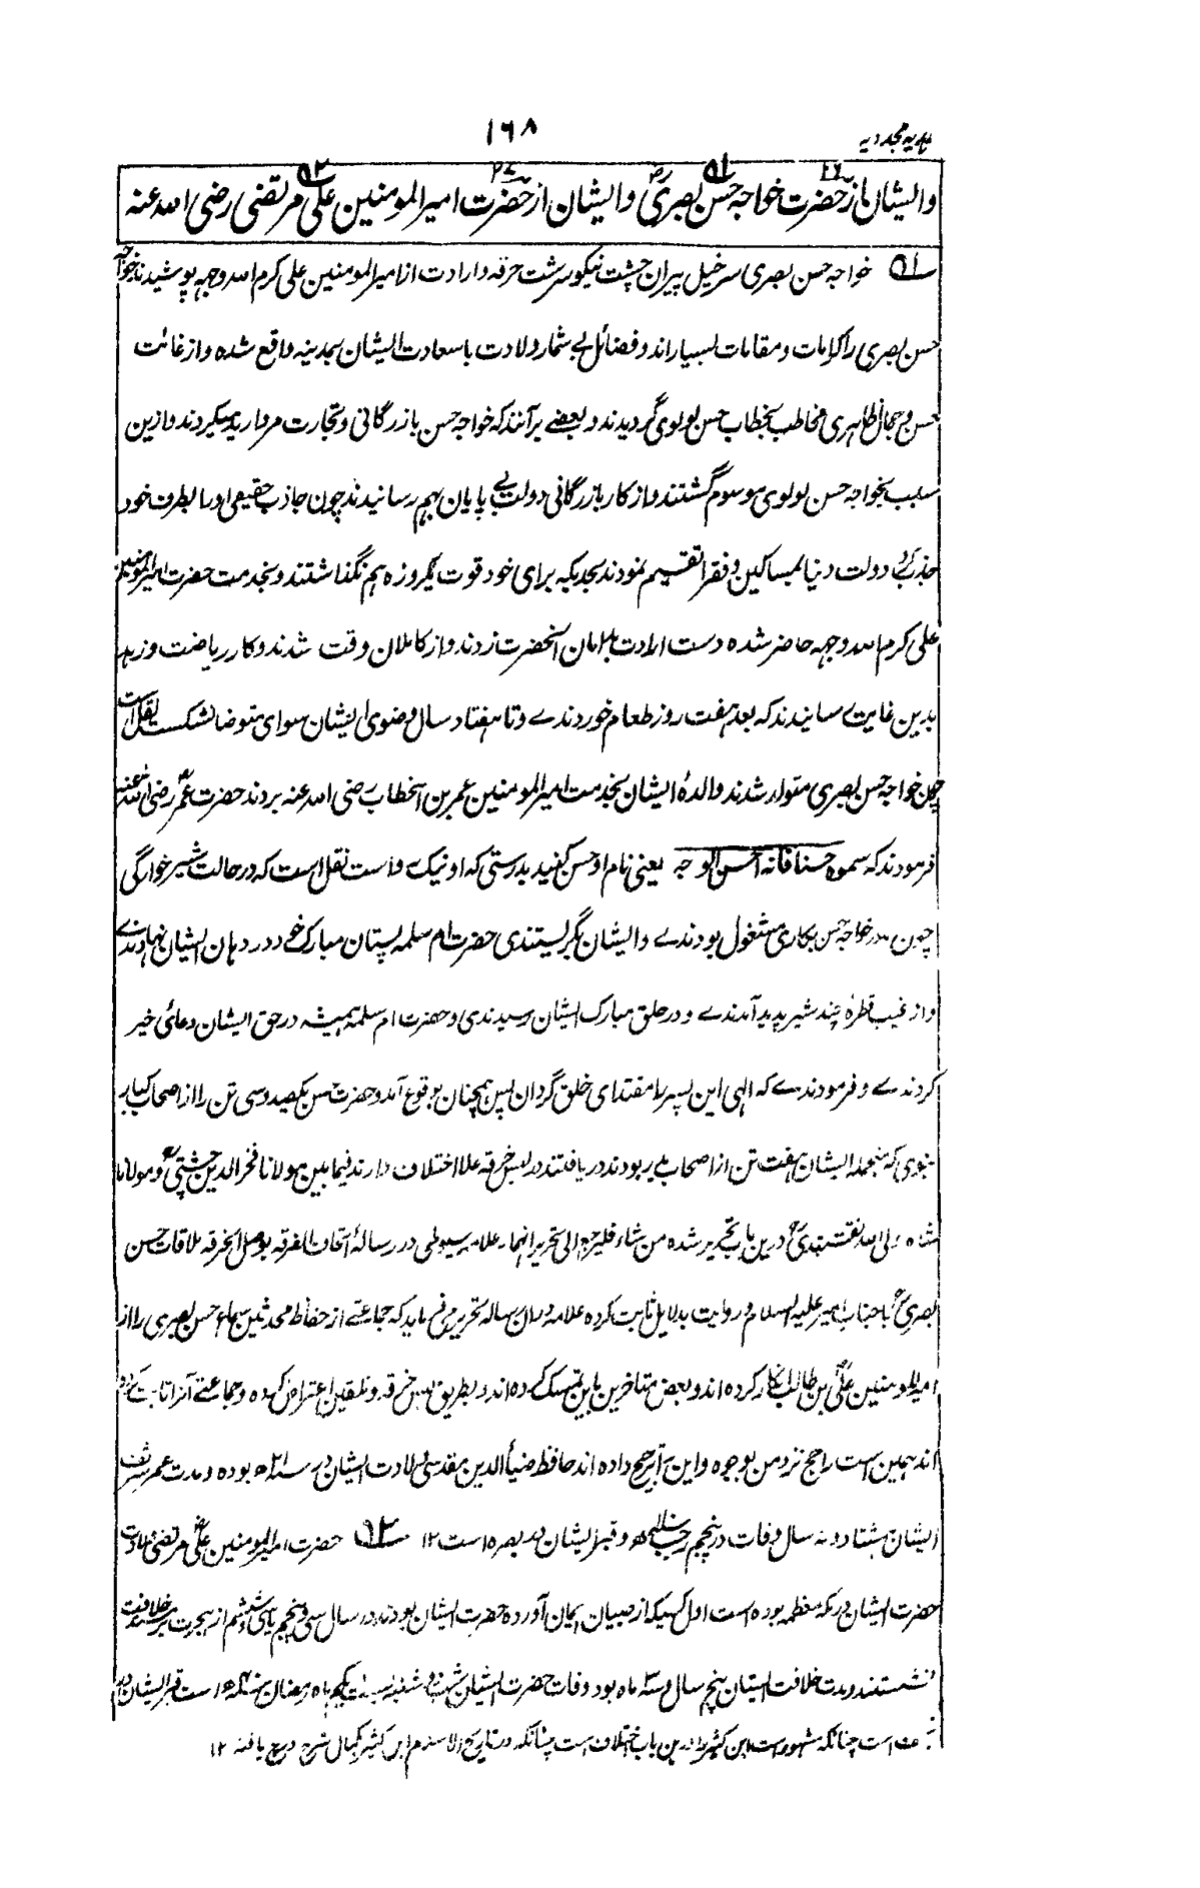 ۱۶۸
ہدیہ مجددیہ
وایشان از حضرت خواجہ حسن بصری رض وایشان از حضرت امیرالمومنین علی مرتضی رضی اللہ عنہ
۵۱ خواجہ حسن بصری سرخیل پیران چشت نیکو سرشت خرقہ وارادت از امیرالمومنین علی کرم اللہ وجہہ پوشیدند خواجہ
حسن بصری را کرامات ومقامات بسیار اند وفضائل بے شمار ولادت باسعادت ایشان بمدینہ واقع شدہ واز غائت
حسن وجمال ظاہری مخاطب بخطاب حسن لولوی گردیدند وبعضے برآنند کہ خواجہ حسن بازرگانی وتجارت مروارید میکردند وازین
سبب بخواجہ حسن لولوی موسوم گشتند واز کار بازرگانی دولت بے پایان بہم رسانیدند چون جاذب حقیقی اورا بطرف خود
جذب کرد دولت دنیا بمساکین وفقرا تقسیم نمودند بحدیکہ برای خود قوت یکروزہ ہم نگذاشتند وبخدمت حضرت امیرالمومنین
علی کرم اللہ وجہہ حاضر شدہ دست ارادت بدامان آنحضرت زدند واز کاملان وقت شدند وکار ریاضت وزہد
بدین غایت رسانیدند کہ بعد ہفت روز طعام خوردندے وتا ہفتاد سال وضوی ایشان سوای متوضا نشکست نقل است
چون خواجہ حسن بصری متولد شدند والدۂ ایشان بخدمت امیرالمومنین عمر بن الخطاب رضی اللہ عنہ بردند حضرت عمر رضی اللہ عنہ
فرمودند کہ سموہ حسنا فانہ احسن الوجہ یعنی نام او حسن کنید بدرستی کہ او نیک رو است نقل است کہ در حالت شیرخوارگی
چون مادر خواجہ حسن بکاری مشغول بودندے وایشان بگریستندی حضرت ام سلمہ پستان مبارک خود در دہان ایشان نہادندے
واز غیب قطرۂ چند شیر پدید آمدندے ودر حلق مبارک ایشان رسیدندی وحضرت ام سلمہ ہمیشہ در حق ایشان دعائی خیر
کردندے وفرمودندے کہ الہی این پسر را مقتدای خلق گردان پس ہمچنان بوقوع آمد وحضرت حسن یکصد وسی تن را از اصحاب کبار
نبوی کہ منجملہ ایشان ہفت تن از اصحاب بدر بودند دریافتند در لبس خرقہ علما اختلاف دارند فیما بین مولانا فخرالدین چشتی ومولانا
شاہ ولی اللہ نقشبندی درین باب تحریر شدہ من شاء فلیرجع الی تحریر انہما علامہ سیوطی در رسالۂ اتحاف الفرقہ بوصل الخرقہ ملاقات حسن
بصری با جناب امیر علیہ السلام وروایت بدلایل ثابت کردہ علامہ دران رسالہ تحریر می فرماید کہ جماعتے از حفاظ محدثین سماع حسن بصری را از
امیرالمومنین علی بن ابی طالب انکار کردہ اند وبعض متاخرین باین تمسک کردہ اند وبطریق لبس خرقہ وتلقین اعتراض کردہ وجماعتے آنرا ثابت کردہ
اند ہمین است راجح نزد من بوجوہ واین را ترجیح دادہ اند حافظ ضیأالدین مقدسی ولادت ایشان در سنہ ۲۱ھ بودہ ومدت عمر شریف
ایشان ہشتاد ونہ سال وفات در پنجم رجب وقبر ایشان در بصرہ است ۱۲ ۵۲ حضرت امیرالمومنین علی مرتضی ولادت
حضرت ایشان در مکہ معظمہ بودہ است اول کسیکہ از صبیان ایمان آوردہ حضرت ایشان بودند در سال سی وپنجم یا سی وششم از ہجرت بر مسند خلافت
نشستند ومدت خلافت ایشان پنج سال وسہ ماہ بود وفات حضرت ایشان شب دوشنبہ بست یکم ماہ رمضان سنہ است قبر ایشان در
نجف است چنانکہ مشہور است ابن کثیر را درین باب اختلاف است چنانکہ در تاریخ الاسلام ابن کثیر بکمال شرح وبسط یافتہ ۱۲